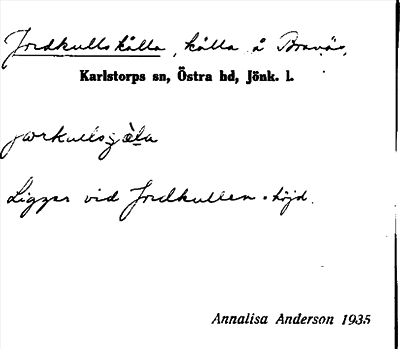 Jordkullskälla, källa å Bravås,
Karlstorps sn, Östra hd, Jönk. l.
Ligger vid Jordkullen - höjd.
Annalisa Anderson 1935